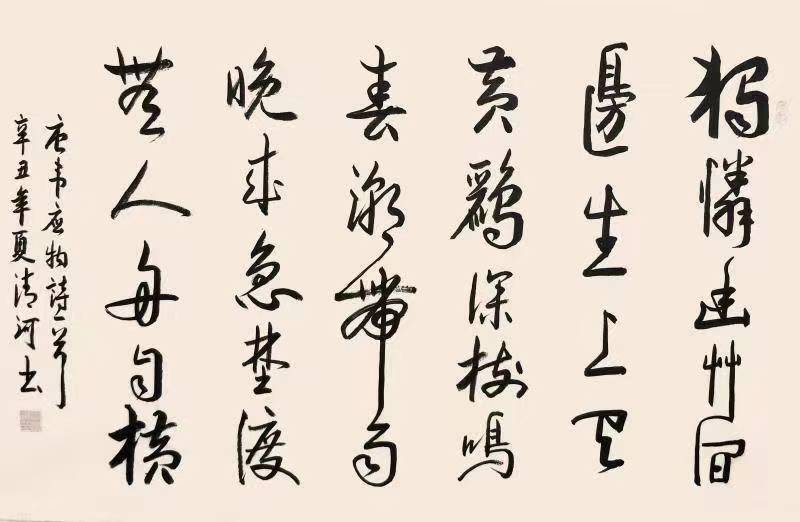 獨憐幽艸澗
邊生上有
黃鸝深樹鳴
春潮帶雨
晚來急埜渡
無人舟自橫
唐韦应物詩一首
辛丑年夏清河书